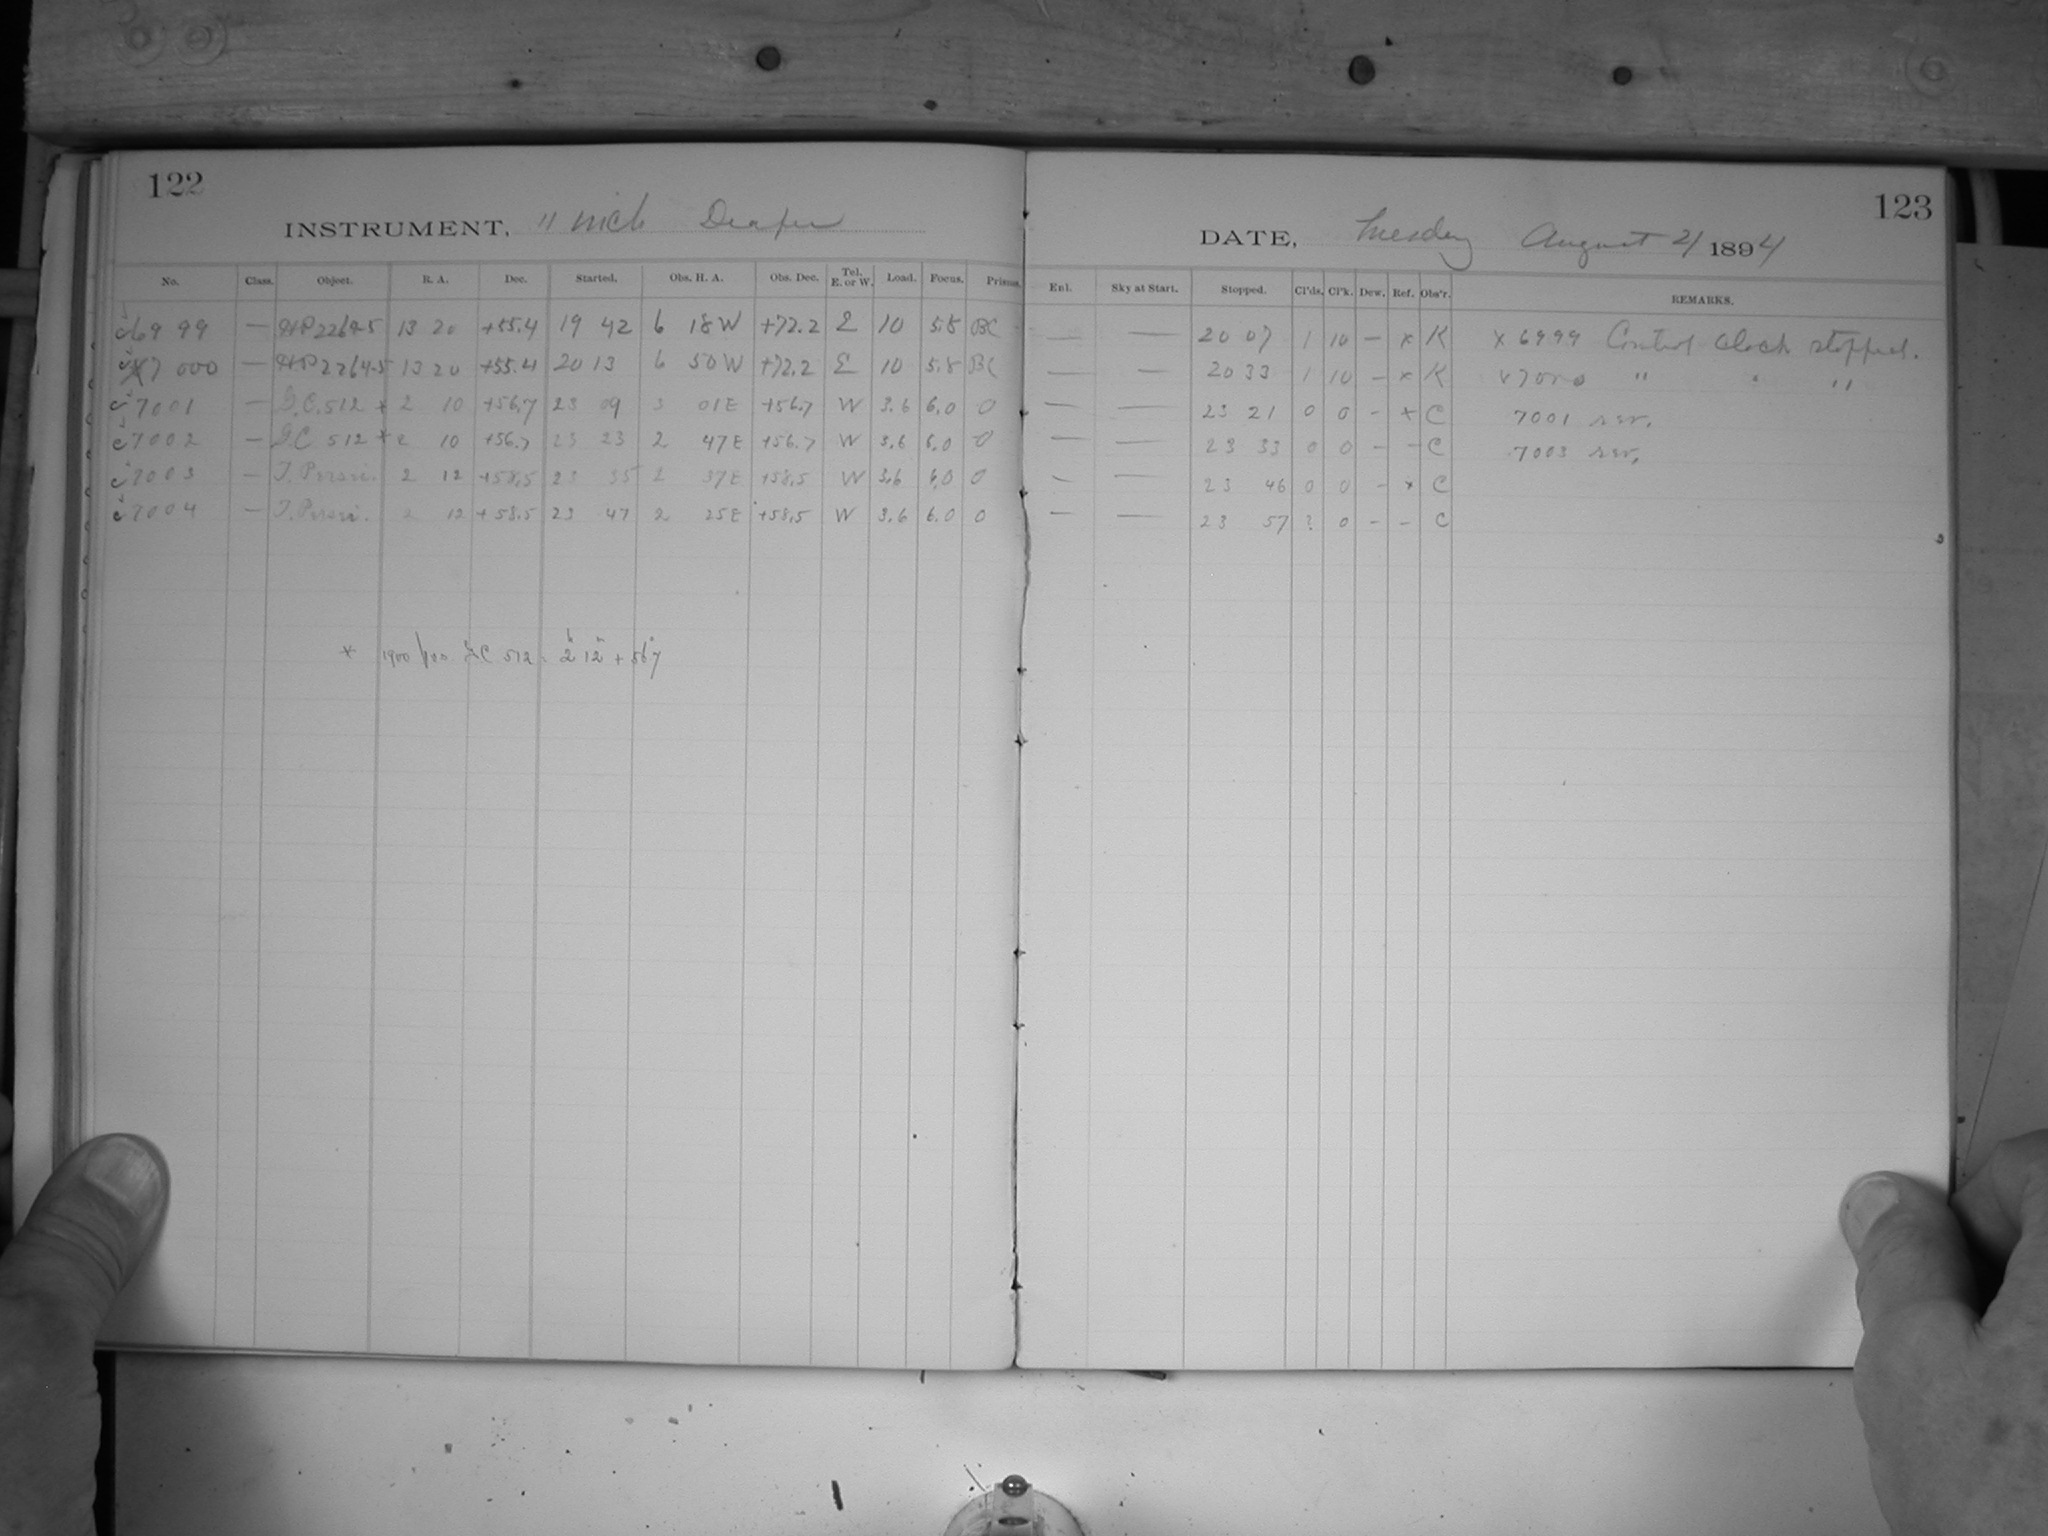 122
INSTRUMENT, 11 inch Draper
No. Class. Object. R. A. Dec. Started. Obs. H. A. Obs. Dec. Tel. E. or W. Load. Focus. Prisms.
c 6999 — HP 2264.5 13 20 +55.4 19 42 6 18 W +72.2 E 10 5.8 BC
7000 — HP 2264.5 13 20 +55.4 20 13 6 50 W +72.2 E 10 5.8 BC
c 7001 — G.C. 512 * 2 10 +56.7 23 09 3 01 E +56.7 W 3.6 6.0 0
c 7002 — G.C 512 * 2 10 +56.7 23 23 2 47 E +56.7 W 3.6 6.0 0
c 7003 — T. Persei. 2 12 +58.5 23 35 2 37 E +58.5 W 3.6 6.0 0
c 7004 — T. Persei. 2 12 +58.5 23 47 2 25 E +58.5 W 3.6 6.0 0
* 1900 pos. G C 512 = 2h 12m + 56°7
123
DATE, Tuesday August 21 1894
Enl. Sky at Start. Stopped. Cl'ds. Cl'k. Dew. Ref. Obs'r. REMARKS.
— — 20 07 1 10 — x K x 6999 Control clock stopped.
— — 20 33 1 10 — x K x 7000 " " "
— — 23 21 0 0 - x C 7001
— — 23 33 0 0 - - C 7003
— — 23 46 0 0 - x C
— — 23 57 ? 0 - - C